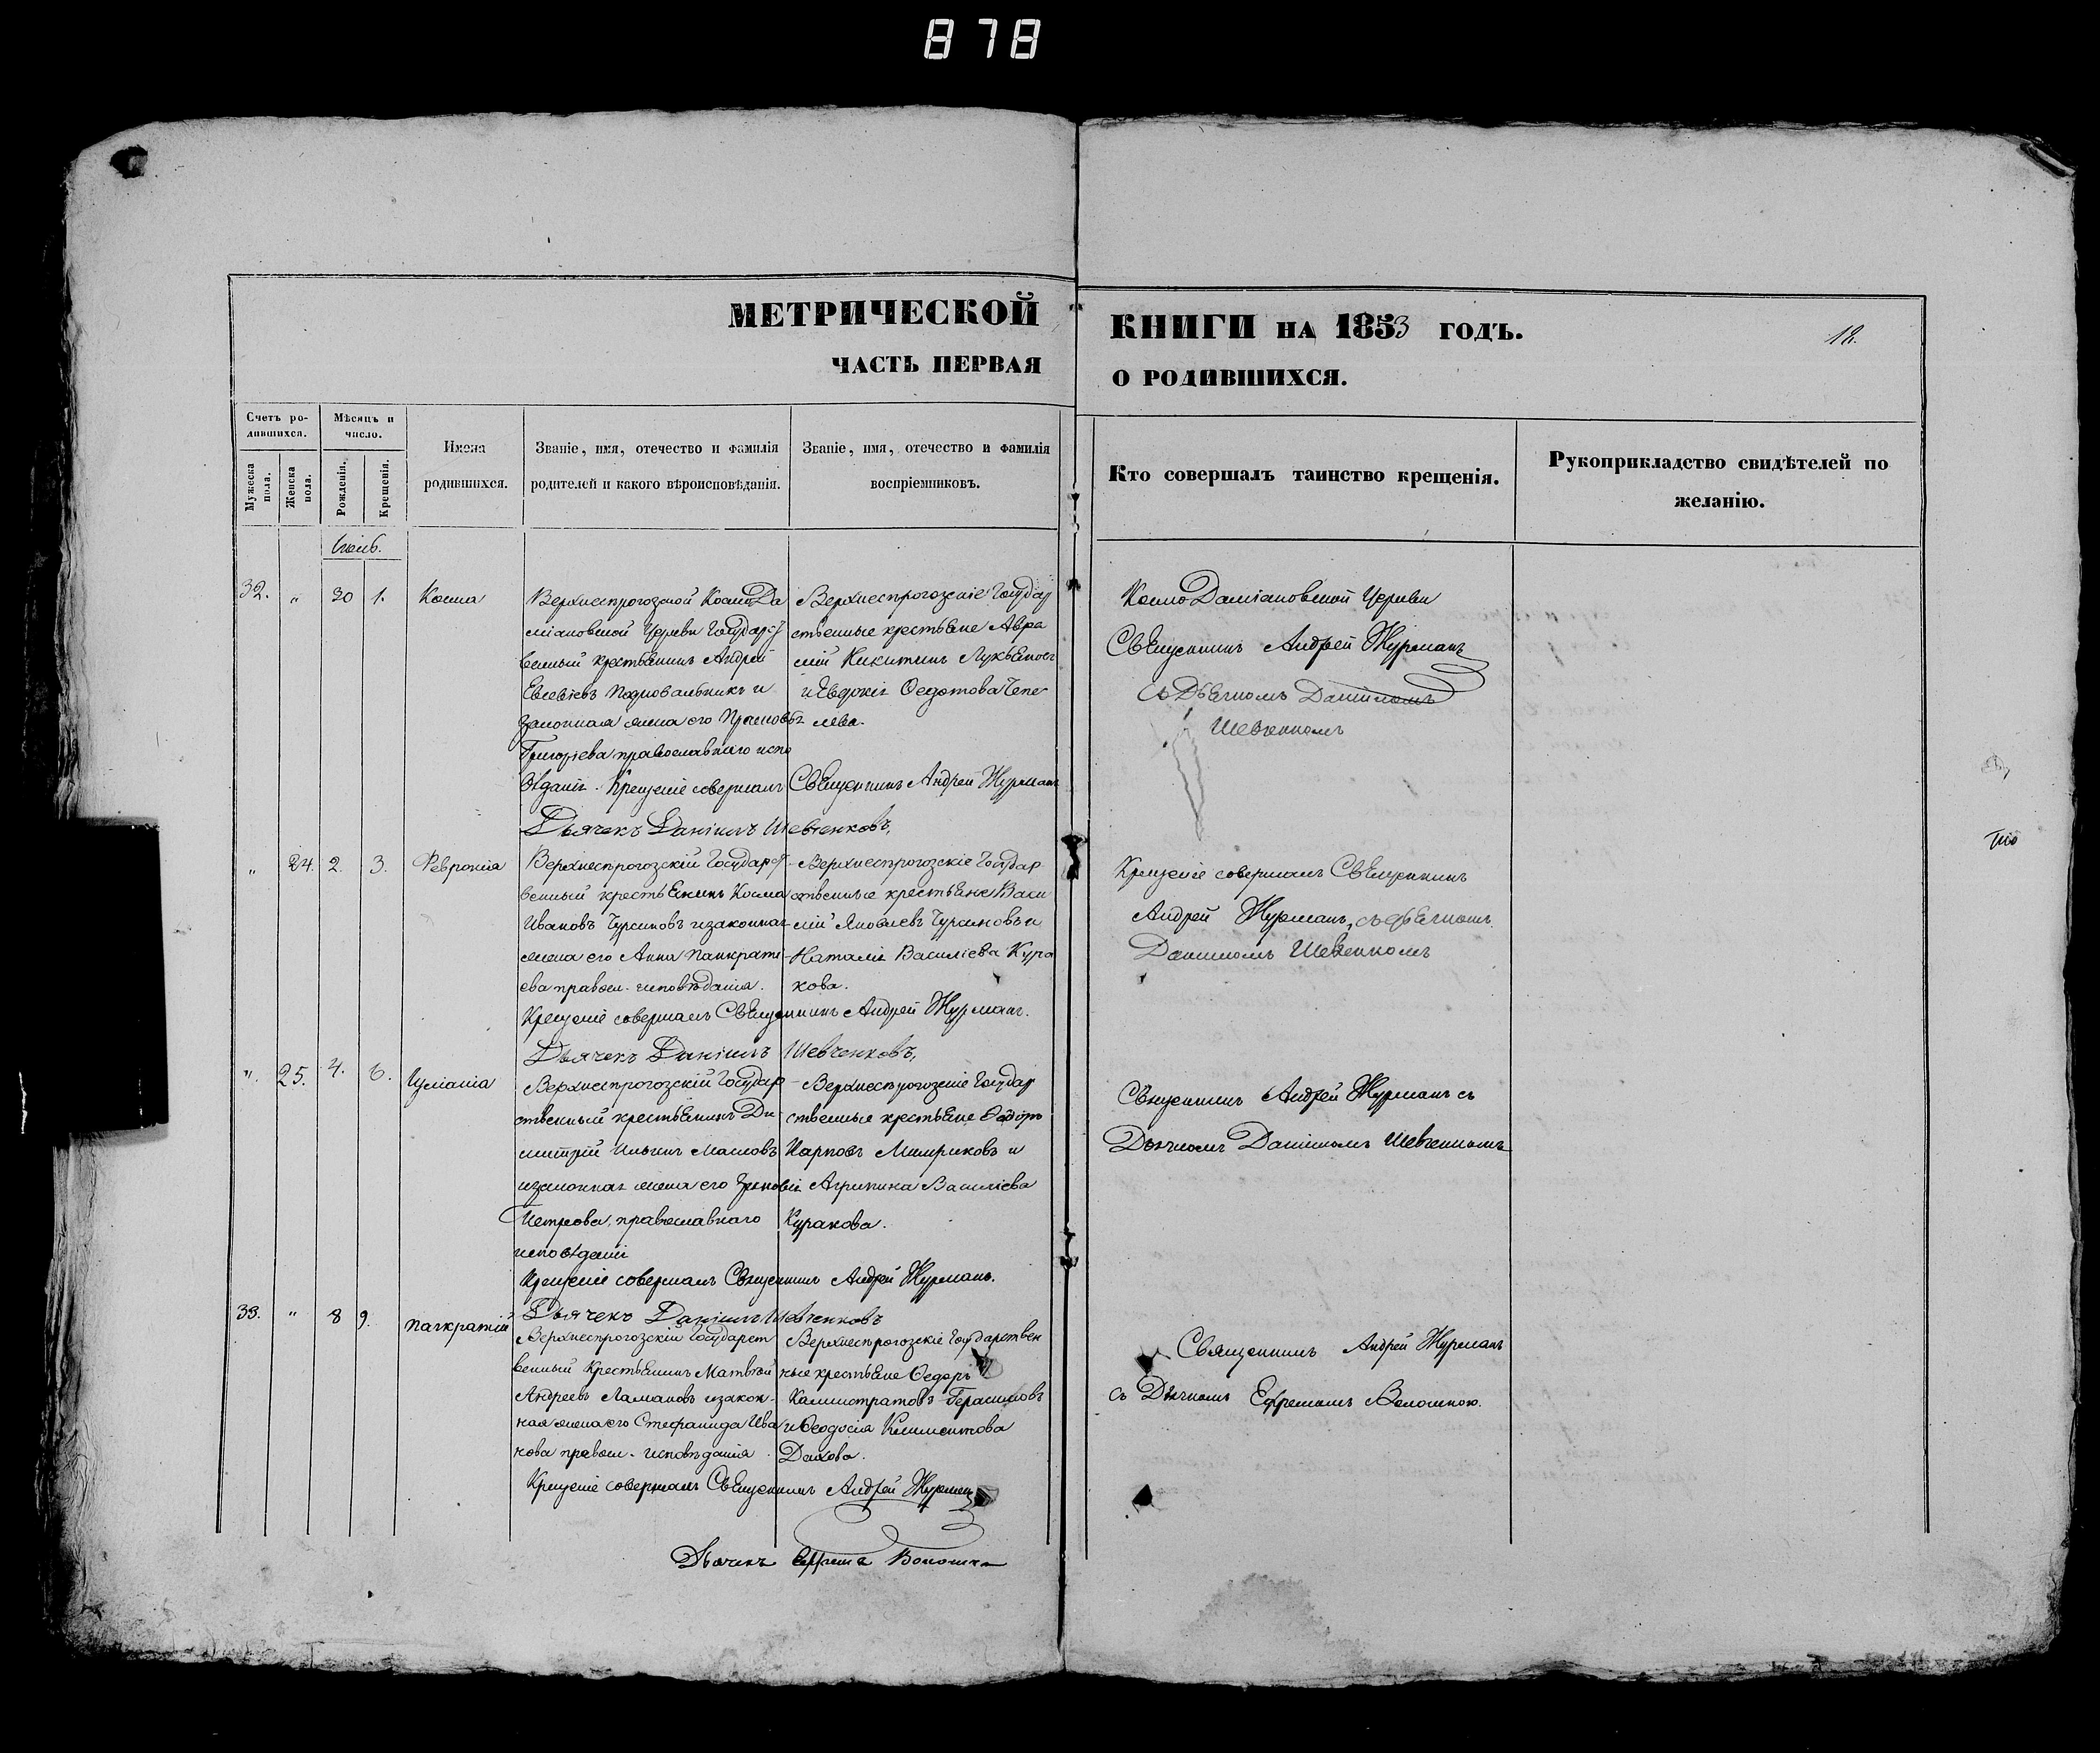 878
МЕТРИЧЕСКОЙ
ЧАСТЬ ПЕРВАЯ
КНИГИ НА 1853 ГОДЪ.
О РОДИВШИХСЯ.
18.
Счетъ ро-
дившихся.
Мужеска пола.
Женска пола.
Мѣсяцъ и
число.
Рожденія.
Крещенія.
Имена
родившихся.
Званіе, имя, отечество и фамилія
родителей и какого вѣроисповѣданія.
Званіе, имя, отечество и фамилія
воспріемниковъ.
Кто совершалъ таинство крещенія.
Рукоприкладство свидѣтелей по
желанію.
32. „ 30 1. Косма
Верхнерогозской Космо Да
міановской Церкви Государст
венный крестьянинъ Андрей
Евсевіевъ и
законная жена его
Григоріева православнаго испо
вѣданія. Крещеніе совершалъ Священникъ Андрей Журманъ
Дьячекъ Даніилъ Шевченковъ,
Верхнерогозскіе Государ
ственные крестьяне Авра
мій Никитинъ
и Евдокія Федотова Чепе
лева.
Космо Даміановской Церкви
Священникъ Андрей Журманъ
съ Дьячкомъ Даніиломъ
Шевченкомъ
„ 24. 2. 3. Февронія
Верхнерогозскій Государст
венный крестьянинъ Косма
Ивановъ Чурсиновъ изаконная
жена его Анна Панкрати
ева правосл. исповѣданія.
Крещеніе совершалъ Священникъ Андрей Журманъ.
Дьячекъ Даніилъ Шевченковъ,
Верхнерогозскіе Государ
ственные крестьяне Васи
лій Яковлевъ Чурсиновъ и
Наталія Василіева Кура
кова.
Крещеніе совершалъ Священникъ
Андрей Журманъ, съ дьячкомъ
Даниломъ Шевченкомъ
„ 25. 4. 6. Іуліанія
Верхнерогозскій Государ
ственный крестьянинъ Ди
митрій Ильинъ Масловъ
изаконная жена его Зиновія
Петрова, православнаго
исповѣданія
Крещеніе совершалъ Священникъ Андрей Журманъ.
Дьячекъ Даніилъ Шевченковъ
Верхнерогозскіе Государ
ственные крестьяне Ѳедоръ
Карповъ и
Агрипина Василіева
Куракова.
Священникъ Андрей Журманъ съ
Дьячкомъ Даніиломъ Шевченкомъ
33. „ 8 9. Панкратій
Верхнерогозскій Государст
венный Крестьянинъ Матвѣй
Андреевъ Ламановъ изакон-
ная жена его Стефанида Ива
нова правосл. исповѣданія.
Крещеніе совершалъ Священникъ Андрей Журманъ
Дьячекъ Ефремъ Волошка
Верхнерогозскіе Государствен
ные крестьяне Ѳедоръ
Калистратовъ Герасимовъ
и Ѳеодосія Климентова
Священникъ Андрей Журманъ
съ Дьячкомъ Ефремомъ Волошкою.